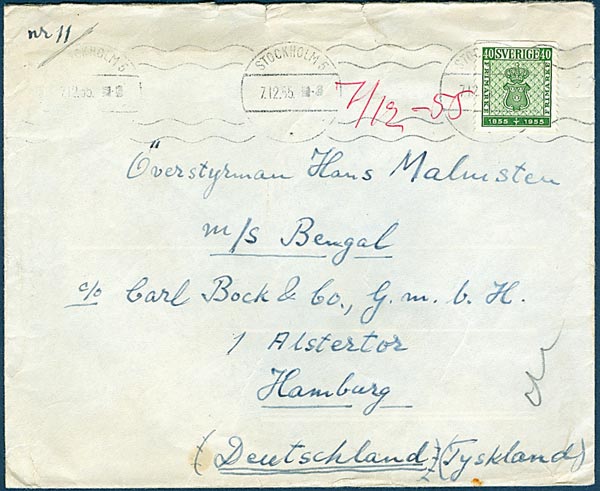 nr 11
STOCKHOLM 5
7.12.55.
STOCKHOLM 5
7.12.55.
7/12 -55
40 SVERIGE 40
FRIMÄRKE
FRIMÄRKE
1855 + 1955
Överstyrman Hans Malmsten
m/s Bengal
c/o Carl Bock & Co., G. m. b. H.
1 Alstertor
Hamburg
(Deutschland) (Tyskland)